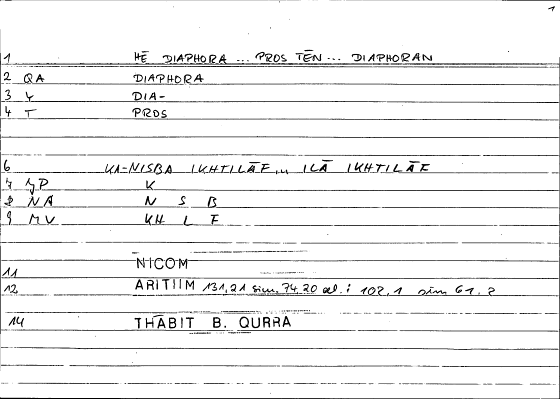 1
1 HĒ DIAPHORA ... PROS TĒN ... DIAPHORAN
2 QA DIAPHORA
3 DIA-
4 T PROS
6 KA-NISBA IKHTILĀF... ILĀ IKHTILĀF
7 K
8 NA N S B
9 MV KH L F
11 NICOM
12 ARITIIM 131,21 sim. 74.20 al. i 102,1 sim 61.
14 THĀBIT B. QURRA